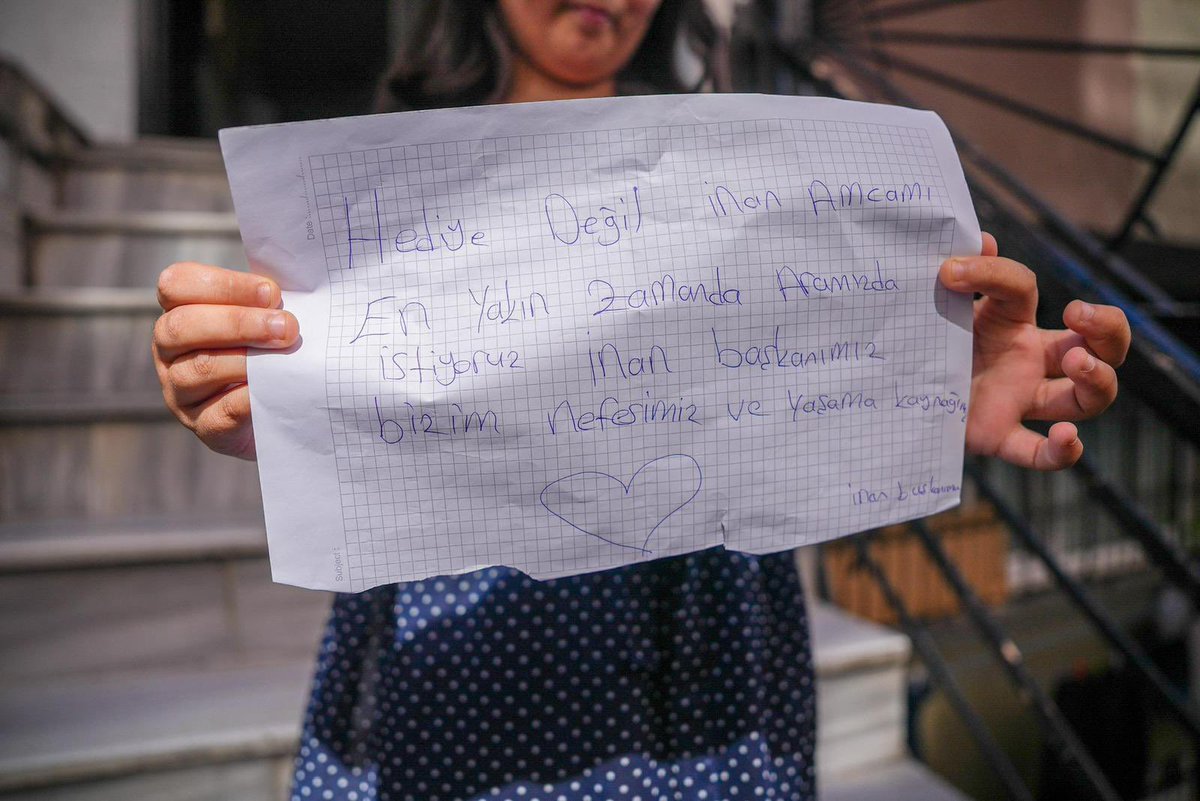 Date:
Hediye Değil inan Amcamı
En Yakın zamanda Aramızda
istiyoruz inan başkanımız
bizim nefesimiz ve yaşama kaynağımız
inan başkanım
Subject: